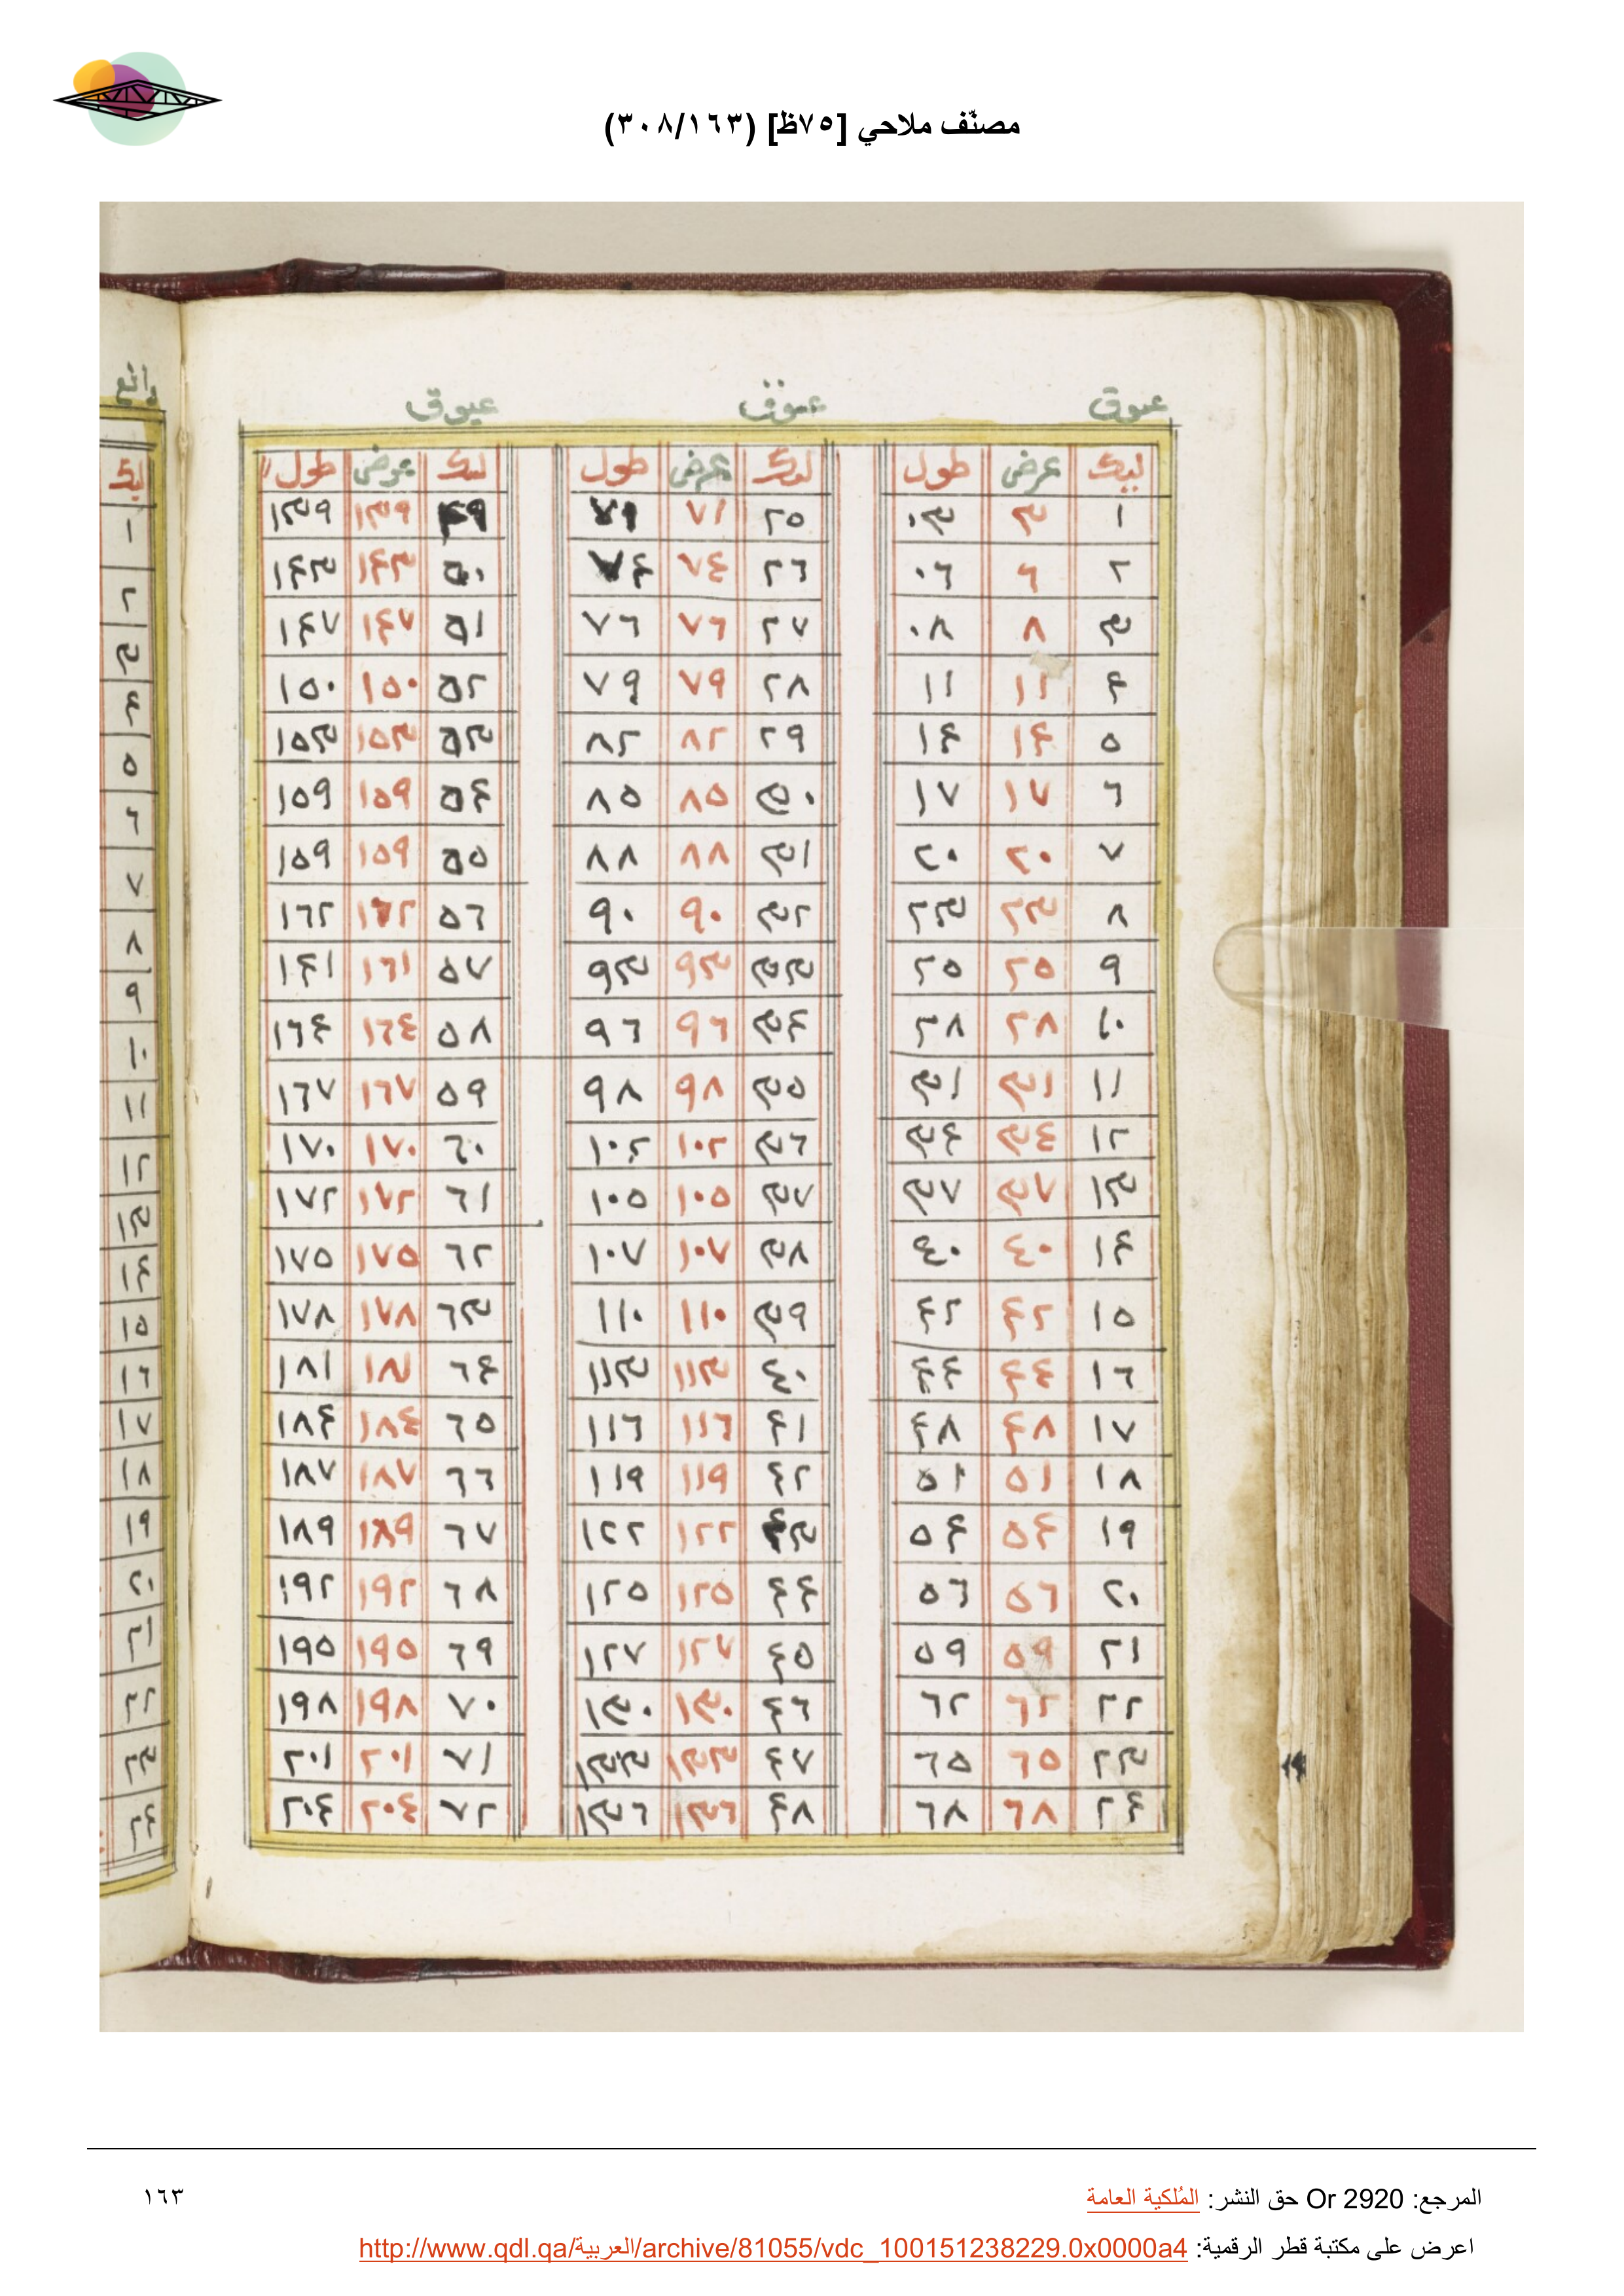 مصنّف ملاحي [٧٥ظ] (٣٠٨/١٦٣)
عيوق عيوق عيوق
ليك عرض طول ليك عرض طول ليك عرض طول
١ ٣ ٠٣ ٢٥ ٧١ ٧١ ٤٩ ١٣٩ ١٣٩
٢ ٦ ٠٦ ٢٦ ٧٤ ٧٤ ٥٠ ١٤٣ ١٤٣
٣ ٨ ٠٨ ٢٧ ٧٦ ٧٦ ٥١ ١٤٧ ١٤٧
٤ ١١ ١١ ٢٨ ٧٩ ٧٩ ٥٢ ١٥٠ ١٥٠
٥ ١٤ ١٤ ٢٩ ٨٢ ٨٢ ٥٣ ١٥٣ ١٥٣
٦ ١٧ ١٧ ٣٠ ٨٥ ٨٥ ٥٤ ١٥٩ ١٥٩
٧ ٢٠ ٢٠ ٣١ ٨٨ ٨٨ ٥٥ ١٥٩ ١٥٩
٨ ٢٣ ٢٣ ٣٢ ٩٠ ٩٠ ٥٦ ١٦٢ ١٦٢
٩ ٢٥ ٢٥ ٣٣ ٩٣ ٩٣ ٥٧ ١٦١ ١٤١
١٠ ٢٨ ٢٨ ٣٤ ٩٦ ٩٦ ٥٨ ١٦٤ ١٦٤
١١ ٣١ ٣١ ٣٥ ٩٨ ٩٨ ٥٩ ١٦٧ ١٦٧
١٢ ٣٤ ٣٤ ٣٦ ١٠٢ ١٠٢ ٦٠ ١٧٠ ١٧٠
١٣ ٣٧ ٣٧ ٣٧ ١٠٥ ١٠٥ ٦١ ١٧٢ ١٧٢
١٤ ٤٠ ٤٠ ٣٨ ١٠٧ ١٠٧ ٦٢ ١٧٥ ١٧٥
١٥ ٤٢ ٤٢ ٣٩ ١١٠ ١١٠ ٦٣ ١٧٨ ١٧٨
١٦ ٤٤ ٤٤ ٤٠ ١١٣ ١١٣ ٦٤ ١٨١ ١٨١
١٧ ٤٨ ٤٨ ٤١ ١١٦ ١١٦ ٦٥ ١٨٤ ١٨٤
١٨ ٥١ ٥١ ٤٢ ١١٩ ١١٩ ٦٦ ١٨٧ ١٨٧
١٩ ٥٤ ٥٤ ٤٣ ١٢٢ ١٢٢ ٦٧ ١٨٩ ١٨٩
٢٠ ٥٦ ٥٦ ٤٤ ١٢٥ ١٢٥ ٦٨ ١٩٢ ١٩٢
٢١ ٥٩ ٥٩ ٤٥ ١٢٧ ١٢٧ ٦٩ ١٩٥ ١٩٥
٢٢ ٦٢ ٦٢ ٤٦ ١٣٠ ١٣٠ ٧٠ ١٩٨ ١٩٨
٢٣ ٦٥ ٦٥ ٤٧ ١٣٣ ١٣٣ ٧١ ٢٠١ ٢٠١
٢٤ ٦٨ ٦٨ ٤٨ ١٣٦ ١٣٦ ٧٢ ٢٠٤ ٢٠٤
ليك
١
٢
٣
٤
٥
٦
٧
٨
٩
١٠
١١
١٢
١٣
١٤
١٥
١٦
١٧
١٨
١٩
٢٠
٢١
٢٢
٢٣
٢٤
المرجع: Or 2920 حق النشر: المُلكية العامة
١٦٣
اعرض على مكتبة قطر الرقمية: http://www.qdl.qa/العربية/archive/81055/vdc_100151238229.0x0000a4